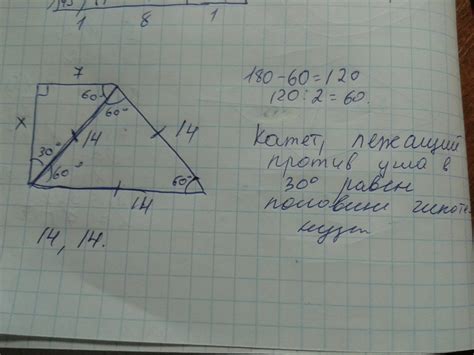 1 8 1
7
180-60=120
120:2=60.
60°
60°
x
14
14
30°
60°
60°
14
Катет, лежащий
против угла в
30° равен
половине гипоте
нузы.
14, 14.